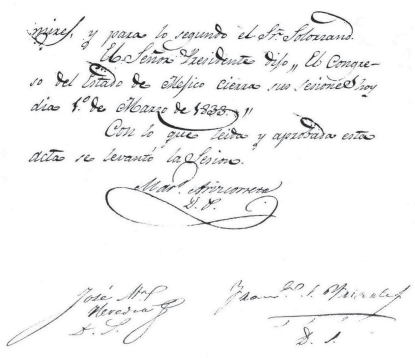 nirez, y para lo segundo el Sr. Solorzano.
El Señor Presidente dijo „ El Congre-
so del Estado de Mejico cierra sus seciones hoy
dia 1.º de Marzo de 1833 „
Con lo que leida y aprobada esta
acta se levantó la Sesion.
Mar.º Arizcorreta
D. P.
José M.ª
Heredia
D. S.
D. S.